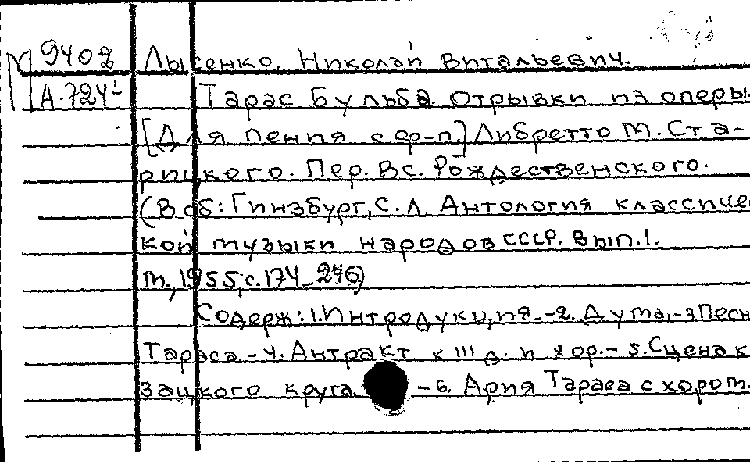 9402 Лысенко, Николай Витальевич.
А.724¹ Тарас Бульба. Отрывки из оперы.
[Для пения с ф-п.] Либретто М. Ста-
рицкого. Пер. Вс. Рождественского.
(В сб: Гинзбург, С. Л. Антология классиче
кой музыки народов СССР. Вып. 1.
М., 1955, с. 174-276)
Содерж: 1. Интродукция. -2. Дума, -3 Песн
Тараса. -4. Антракт к III д. и хор. -5. Сцена к
зацкого круга -6. Ария Тараса с хором.